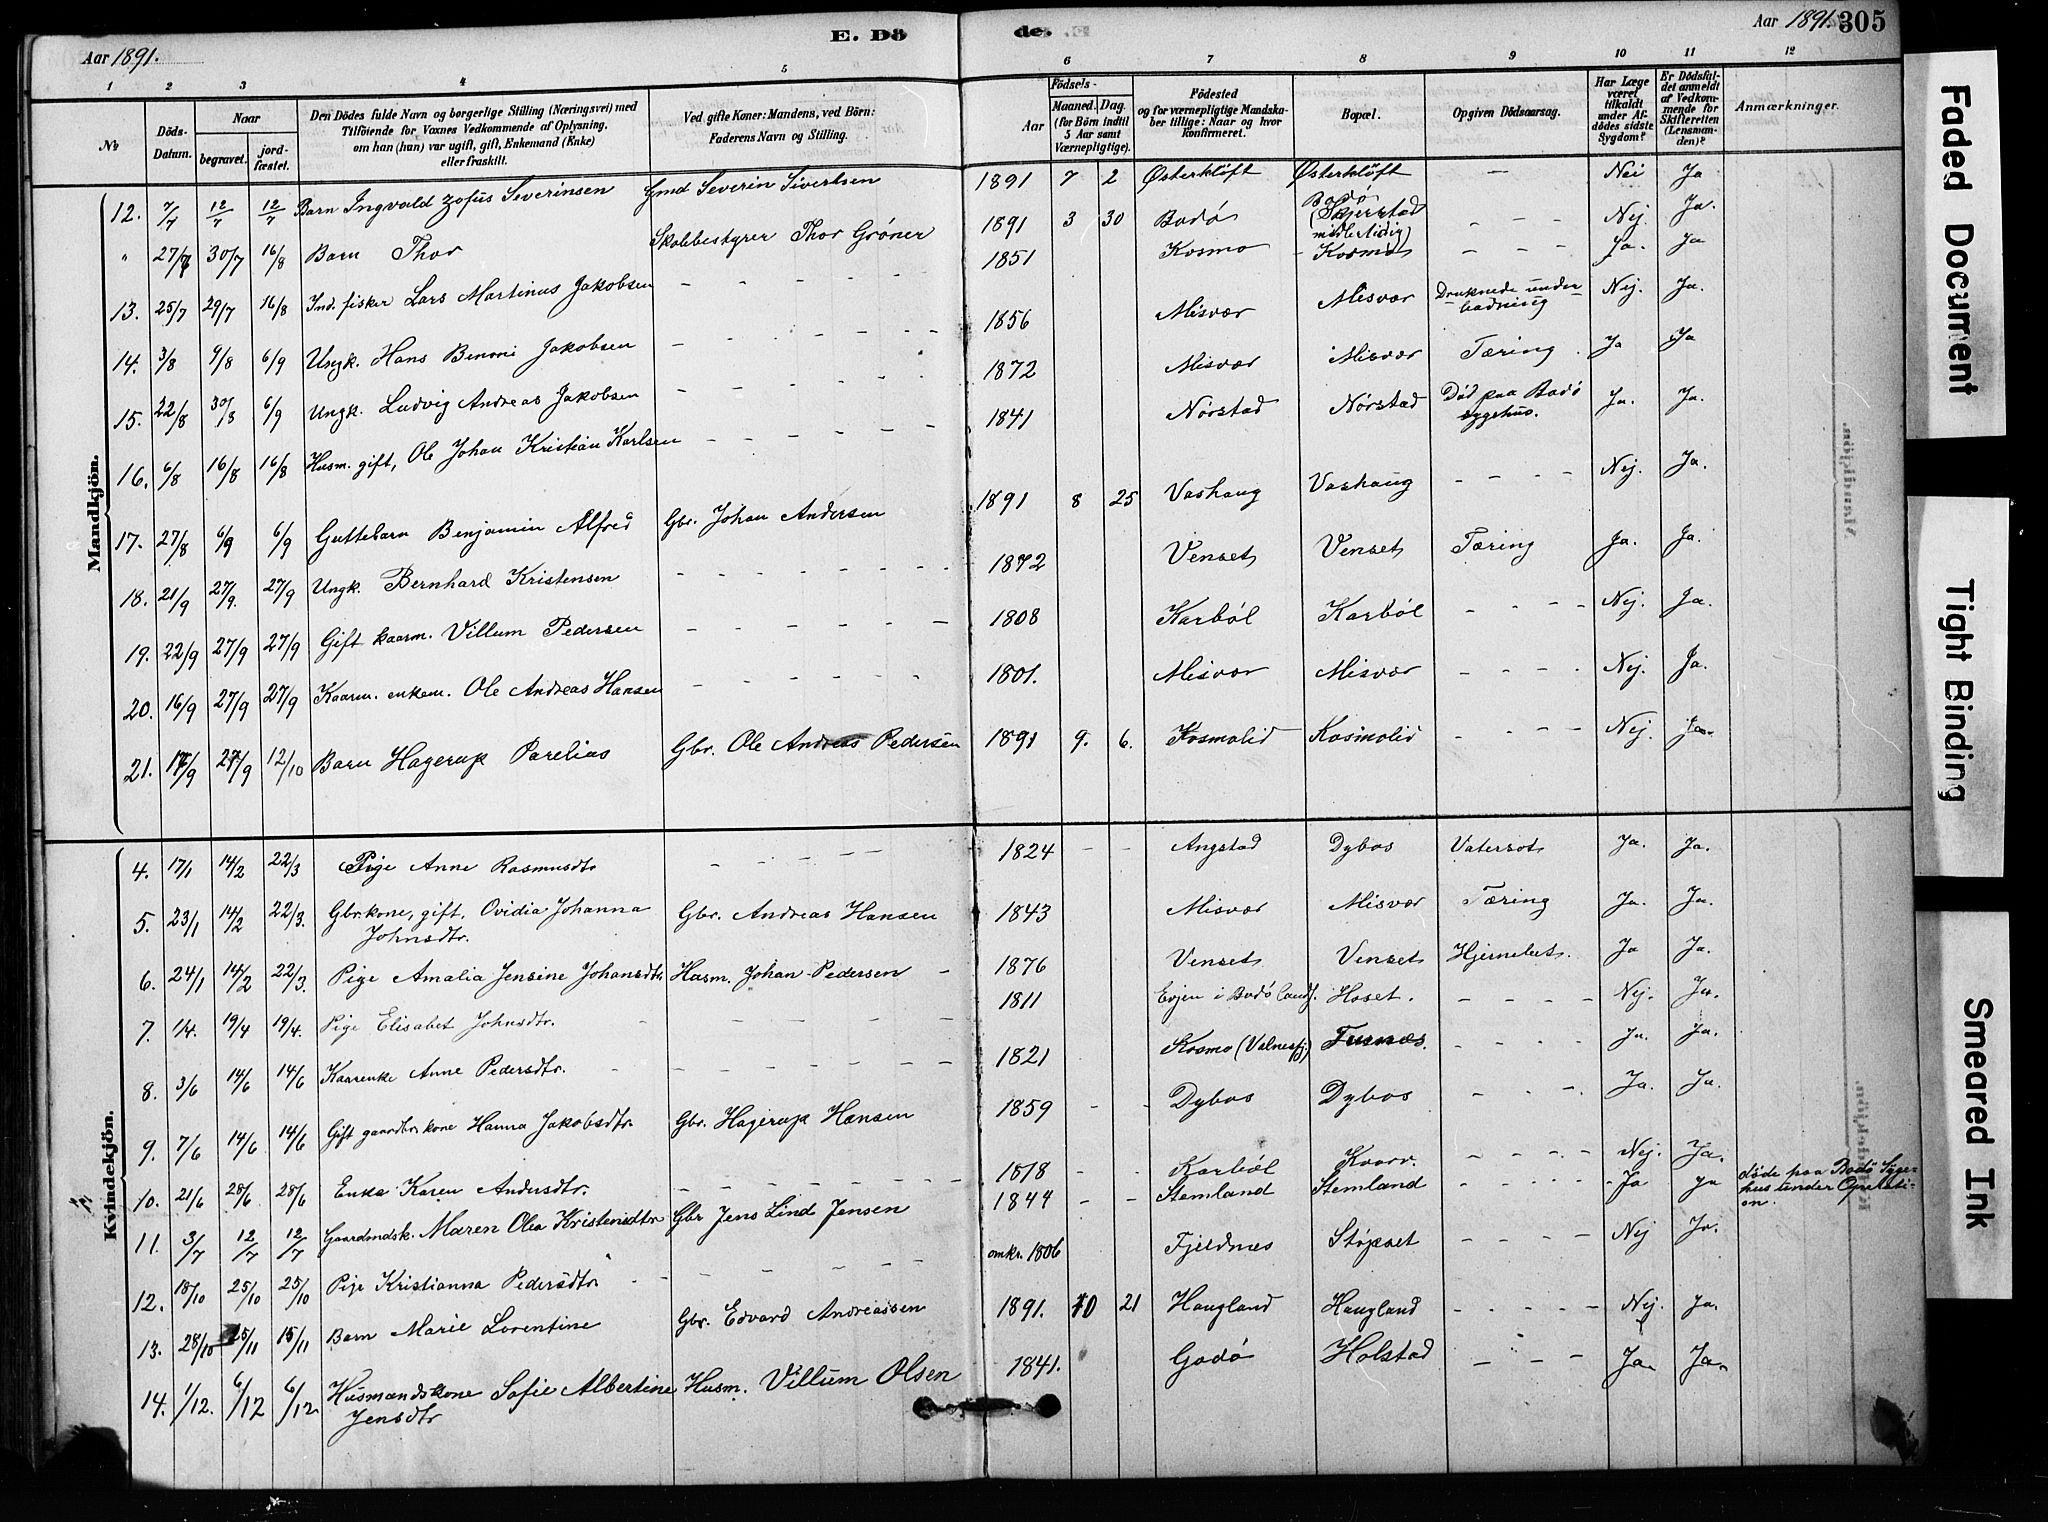 Aar 1891.
E. Dö
de.
Aar 1891.
305
1 2 3 4 5 6 7 8 9 10 11 12
No
Döds-Datum.
Naar
begravet.
jord-fæstet.
Den Dödes fulde Navn og borgerlige Stilling (Næringsvei) med
Tilföiende for Voxnes Vedkommende af Oplysning,
om han (hun) var ugift, gift, Enkemand (Enke)
eller fraskilt.
Ved gifte Koner: Mandens, ved Börn:
Faderens Navn og Stilling.
Födsels-
Aar
Maaned. Dag.
(for Börn indtil
5 Aar samt
Værnepligtige).
Födested
og for værnepligtige Mandska-
ber tillige: Naar og hvor
konfirmeret.
Bopæl.
Opgiven Dödsaarsag.
Har Læge
været
tilkaldt
under Af-
dödes sidste
Sygdom?
Er Dödsfal-
det anmeldt
af Vedkom-
mende for
Skifteretten
(Lensman-
den)?
Anmærkninger.
Mandkjön.
12. 7/7 12/7 12/7 Barn Ingvald Zofus Severinsen Gmd Severin Sivertsen 1891 7 2 Østerkløft Østerkløft — Nei Ja
" 27/7 30/7 16/8 Barn Thor Skolebestyrer Thor Grøner 1891 3 30 Bodø Bodø (Skjerstad midlertidig) - - - Nej. Ja.
13. 25/7 29/7 16/8 Ind. fisker Lars Martinus Jakobsen - - - - 1851 Kosmo Kosmo - - - Ja. Ja
14. 3/8 9/8 6/9 Ungk. Hans Benoni Jakobsen - - - - - 1856 Misvær Misvær Druknede under badning Nej. Ja.
15. 22/8 30/8 6/9 Ungk. Ludvig Andreas Jakobsen - - - - - 1872 Misvær Misvær Tæring. Ja Ja
16. 6/8 16/8 16/8 Husm. gift, Ole Johan Kristian Karlsen - - - - - - 1841 Nørstad Nørstad Død paa Bodø sygehus. Ja. Ja.
17. 27/8 6/9 6/9 Guttebarn Benjamin Alfred Gbr. Johan Andersen 1891 8 25 Vashaug Vashaug - - - - Nej. Ja.
18. 21/9 27/9. 27/9 Ungk. Bernhard Kristensen - - - - - - 1872 Venset Venset Tæring Ja. Ja.
19. 22/9 27/9 27/9 Gift kaarm. Villum Pedersen - - - - - - 1808 Karbøl Karbøl - - - - Nej. Ja.
20. 16/9 27/9 27/9 Kaarm. enkem. Ole Andreas Hansen - - - - - - 1801. Misvær Misvær - - - - Nej. Ja.
21. 17/9 27/9 12/10 Barn Hagerup Parelius Gbr. Ole Andreas Pedersen 1891 9. 6. Kosmolid Kosmolid - - - - Nej. Ja.
Kvindekjön.
4. 17/1 14/2 22/3 Pige Anne Rasmusdtr - - - - - 1824 - - Angstad Dybos Vatersot Ja. Ja.
5. 23/1 14/2 22/3. Gbr.kone, gift. Ovidia Johanna Johnsdtr. Gbr. Andreas Hansen 1843 Misvær Misvær Tæring Ja. Ja.
6. 24/1 14/2 22/3. Pige Amalia Jensine Johansdtr Husm. Johan Pedersen 1876 Venset Venset Hjernebet. Ja Ja.
7. 1/4. 19/4 19/4. Pige Elisabet Johnsdtr. - - - - - - 1811 Evjen i Bodø lands. Hoset. - - - - Nej. Ja.
8. 3/6 14/6 14/6 Kaarenke Anne Pedersdtr. - - - - - - 1821 Kosmo (Valnesfj.) Fusnes. - - - - Ja. Ja.
9. 7/6 14/6 14/6 Gift gaardbr.kone Hanna Jakobsdtr. Gbr. Hagerup Hansen 1859 - - Dybos Dybos - - - Ja. Ja.
10. 21/6 28/6 28/6 Enke Karen Andersdtr. - - - - - - 1818 - - Karbøl Kvarv. - - - - Nej. Ja.
11. 3/7 12/7 12/7 Gaardmdsk. Maren Olea Kristensdtr Gbr Jens Lind Jensen 1844 - - Stemland Stemland - - - - Ja ja døde paa Bodø Syge-
hus under Operati-
on.
12. 18/10 25/10 25/10 Pige Kristianna Pedersdtr - - - - - - omkr. 1806 Fjeldnes Støpset - - - - Nej Ja.
13. 28/10 15/11 15/11 Barn Marie Lorentine Gbr. Edvard Andreassen 1891. 10 21 Haugland Haugland - - - - - Nej. Ja.
14. 1/12. 6/12 6/12. Husmandskone Sofie Albertine Jensdtr Husm. Villum Olsen 1841. Godø Holstad - - - Ja. Ja.
Faded Document
Tight Binding
Smeared Ink